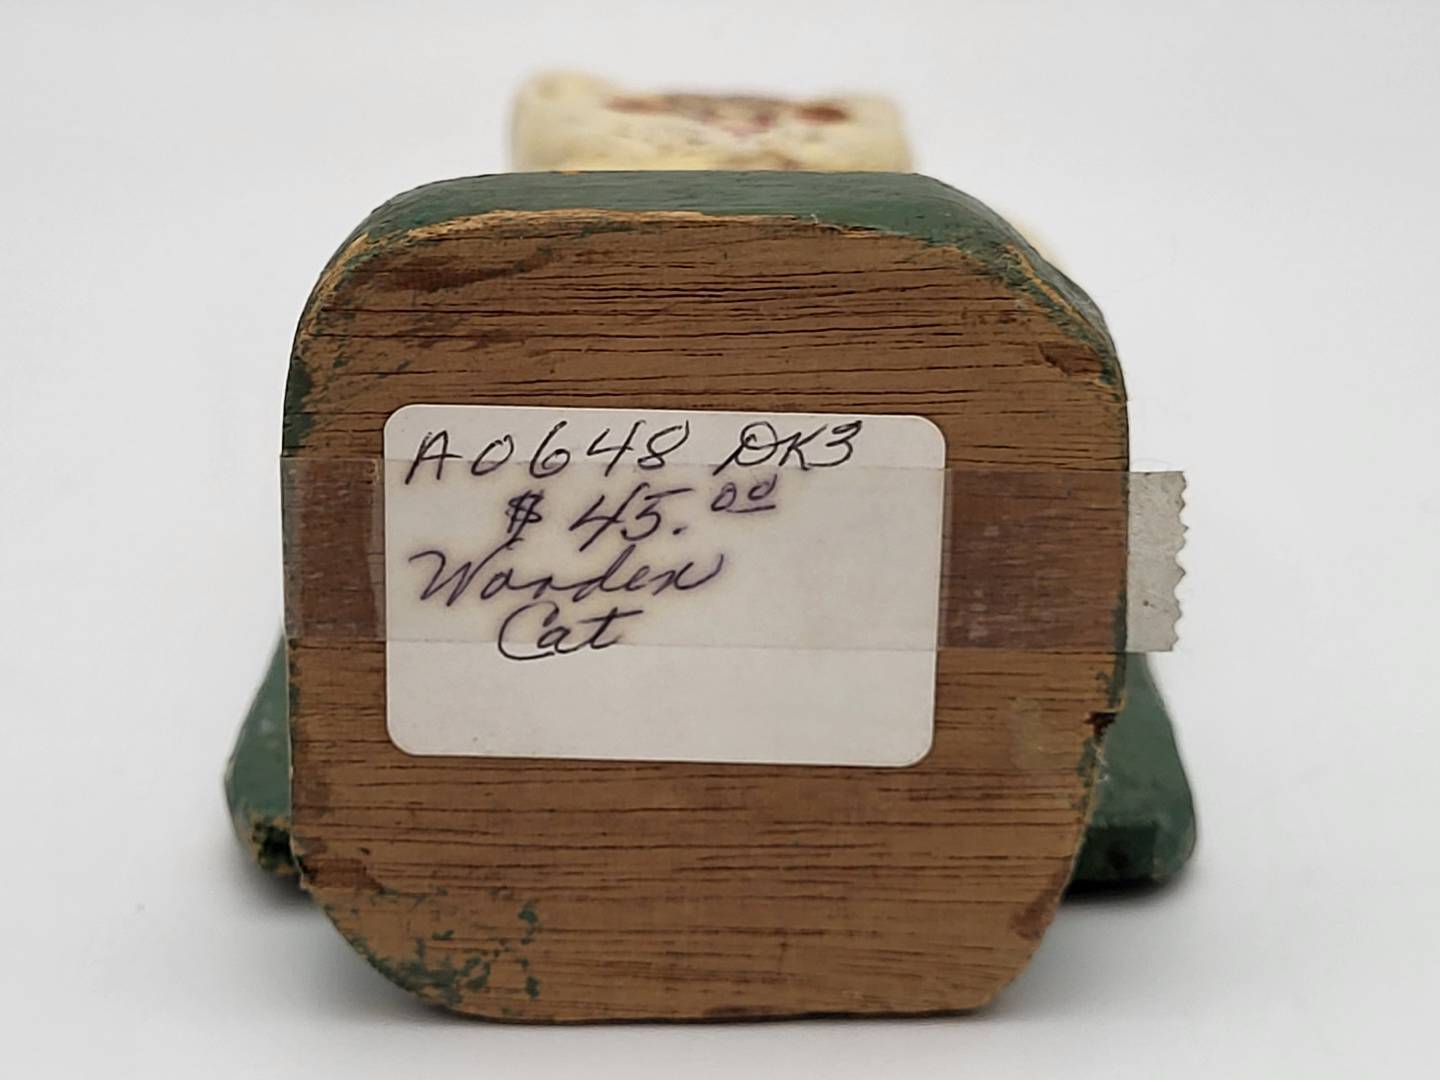 A0648 DK3
$ 45.00
Wooden
Cat